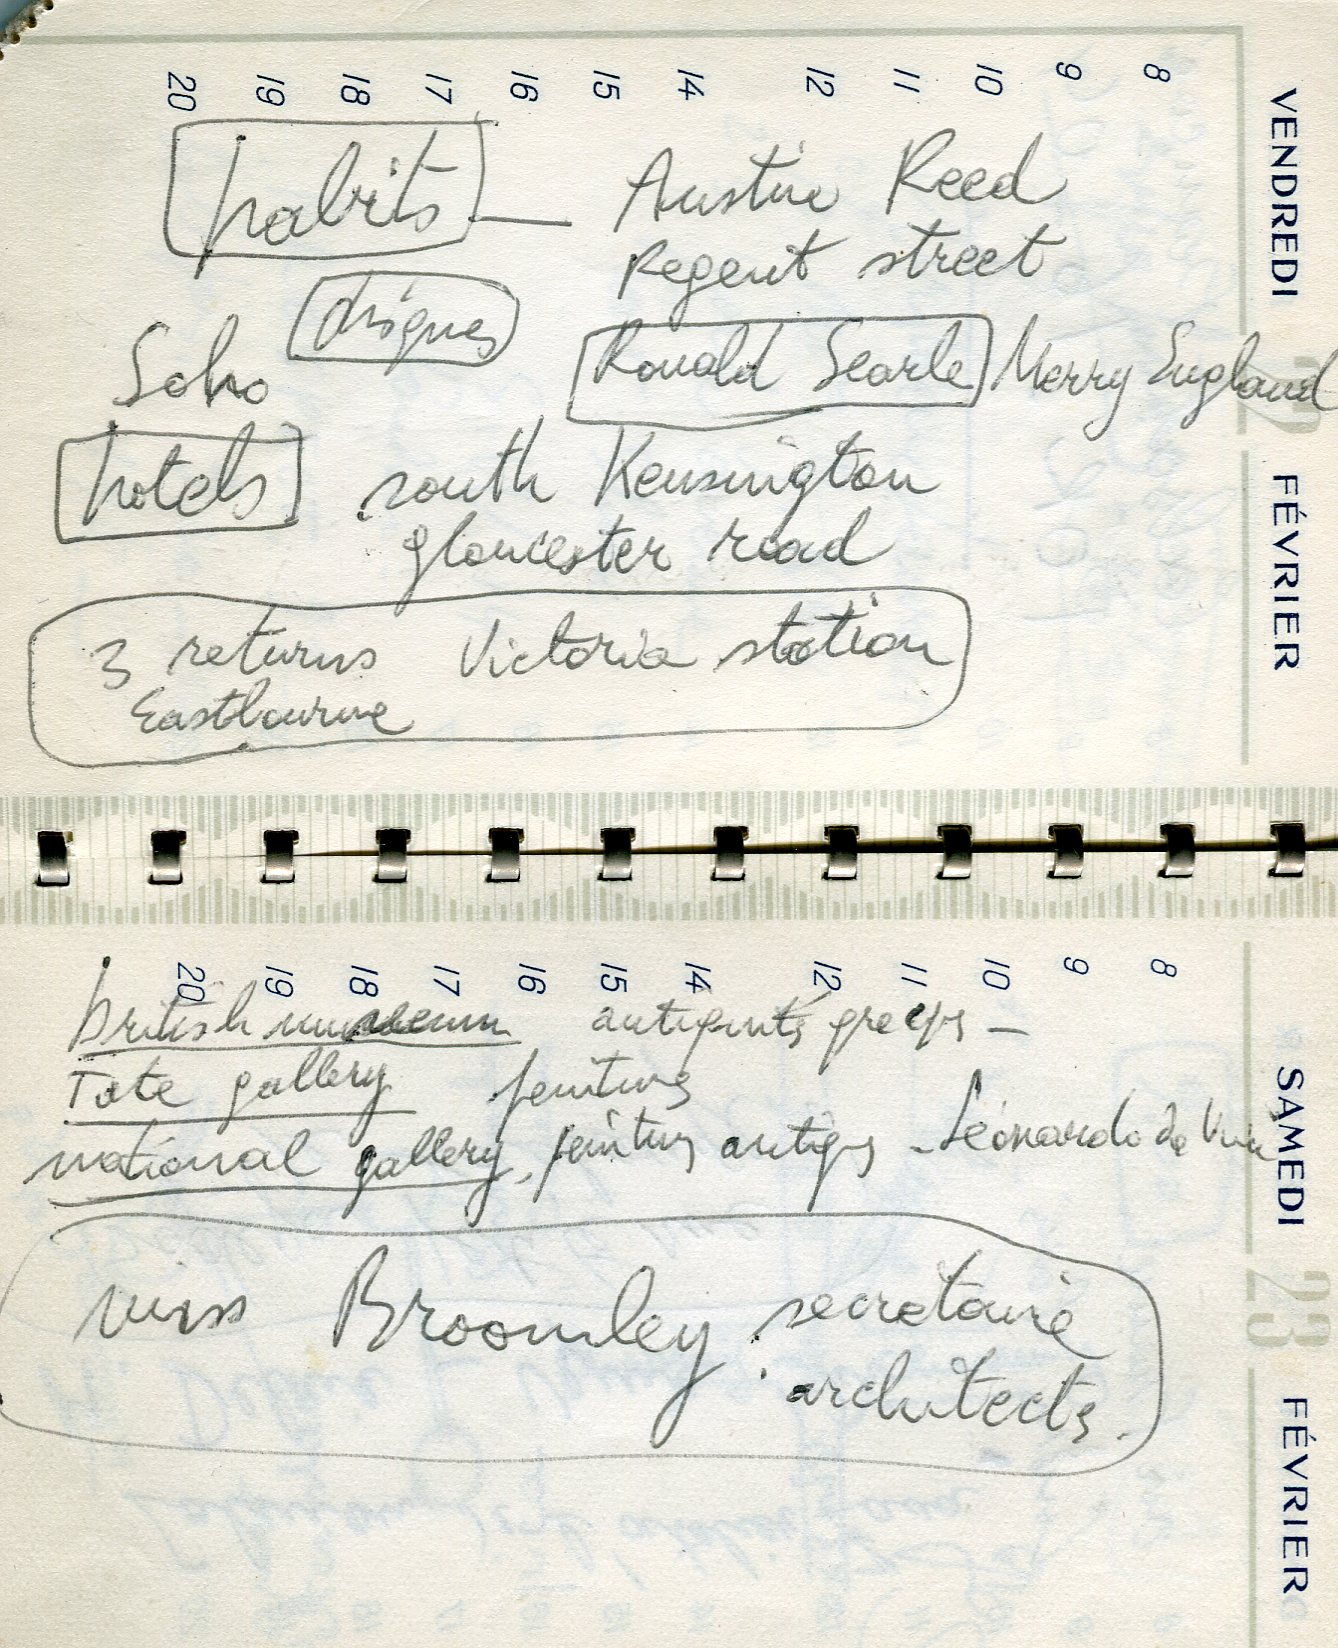 20 19 18 17 16 15 14 12 11 10 9 8
VENDREDI 22 FÉVRIER
habits — Austin Reed
Regent street
disques
Soho
Ronald Searle Merry England
hotels south Kensington
gloucester road
3 returns Victoria station
Eastbourne
20 19 18 17 16 15 14 12 11 10 9 8
SAMEDI 23 FÉVRIER
British museum antiquités grecqs —
Tate gallery peintures
national gallery, peintures antiqs - Léonardo da Vinci
miss Broomley secretaire
architects.